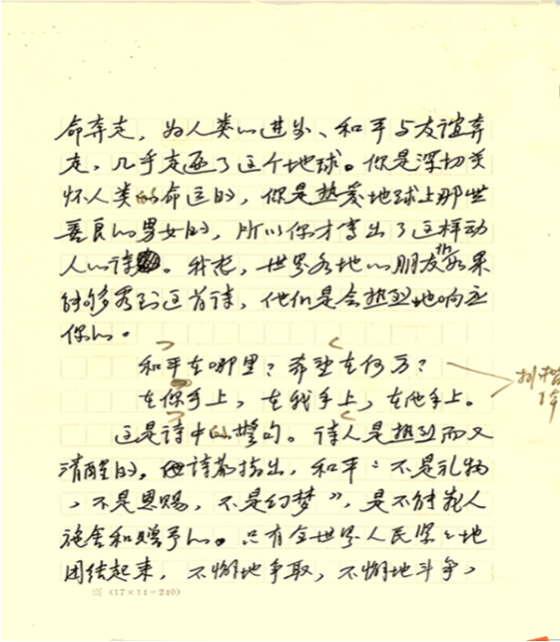 命奔走，为人类的进步、和平与友谊奔
走，几乎走遍了这个地球。你是深切关
怀人类的命运的，你是热爱地球上那些
善良的男女的，所以你才写出了这样动
人的诗。我想，世界各地的朋友们如果
能够看到这首诗，他们是会热烈地响应
你的。
和平在哪里？希望在何方？
在你手上，在我手上，在他手上。
这是诗中的警句。诗人是热烈而又
清醒的。他诗篇指出，和平“不是礼物
，不是恩赐，不是幻梦”，是不能靠人
施舍和赠予的。只有全世界人民紧紧地
团结起来，不懈地争取，不懈地斗争，
(17×14=240)